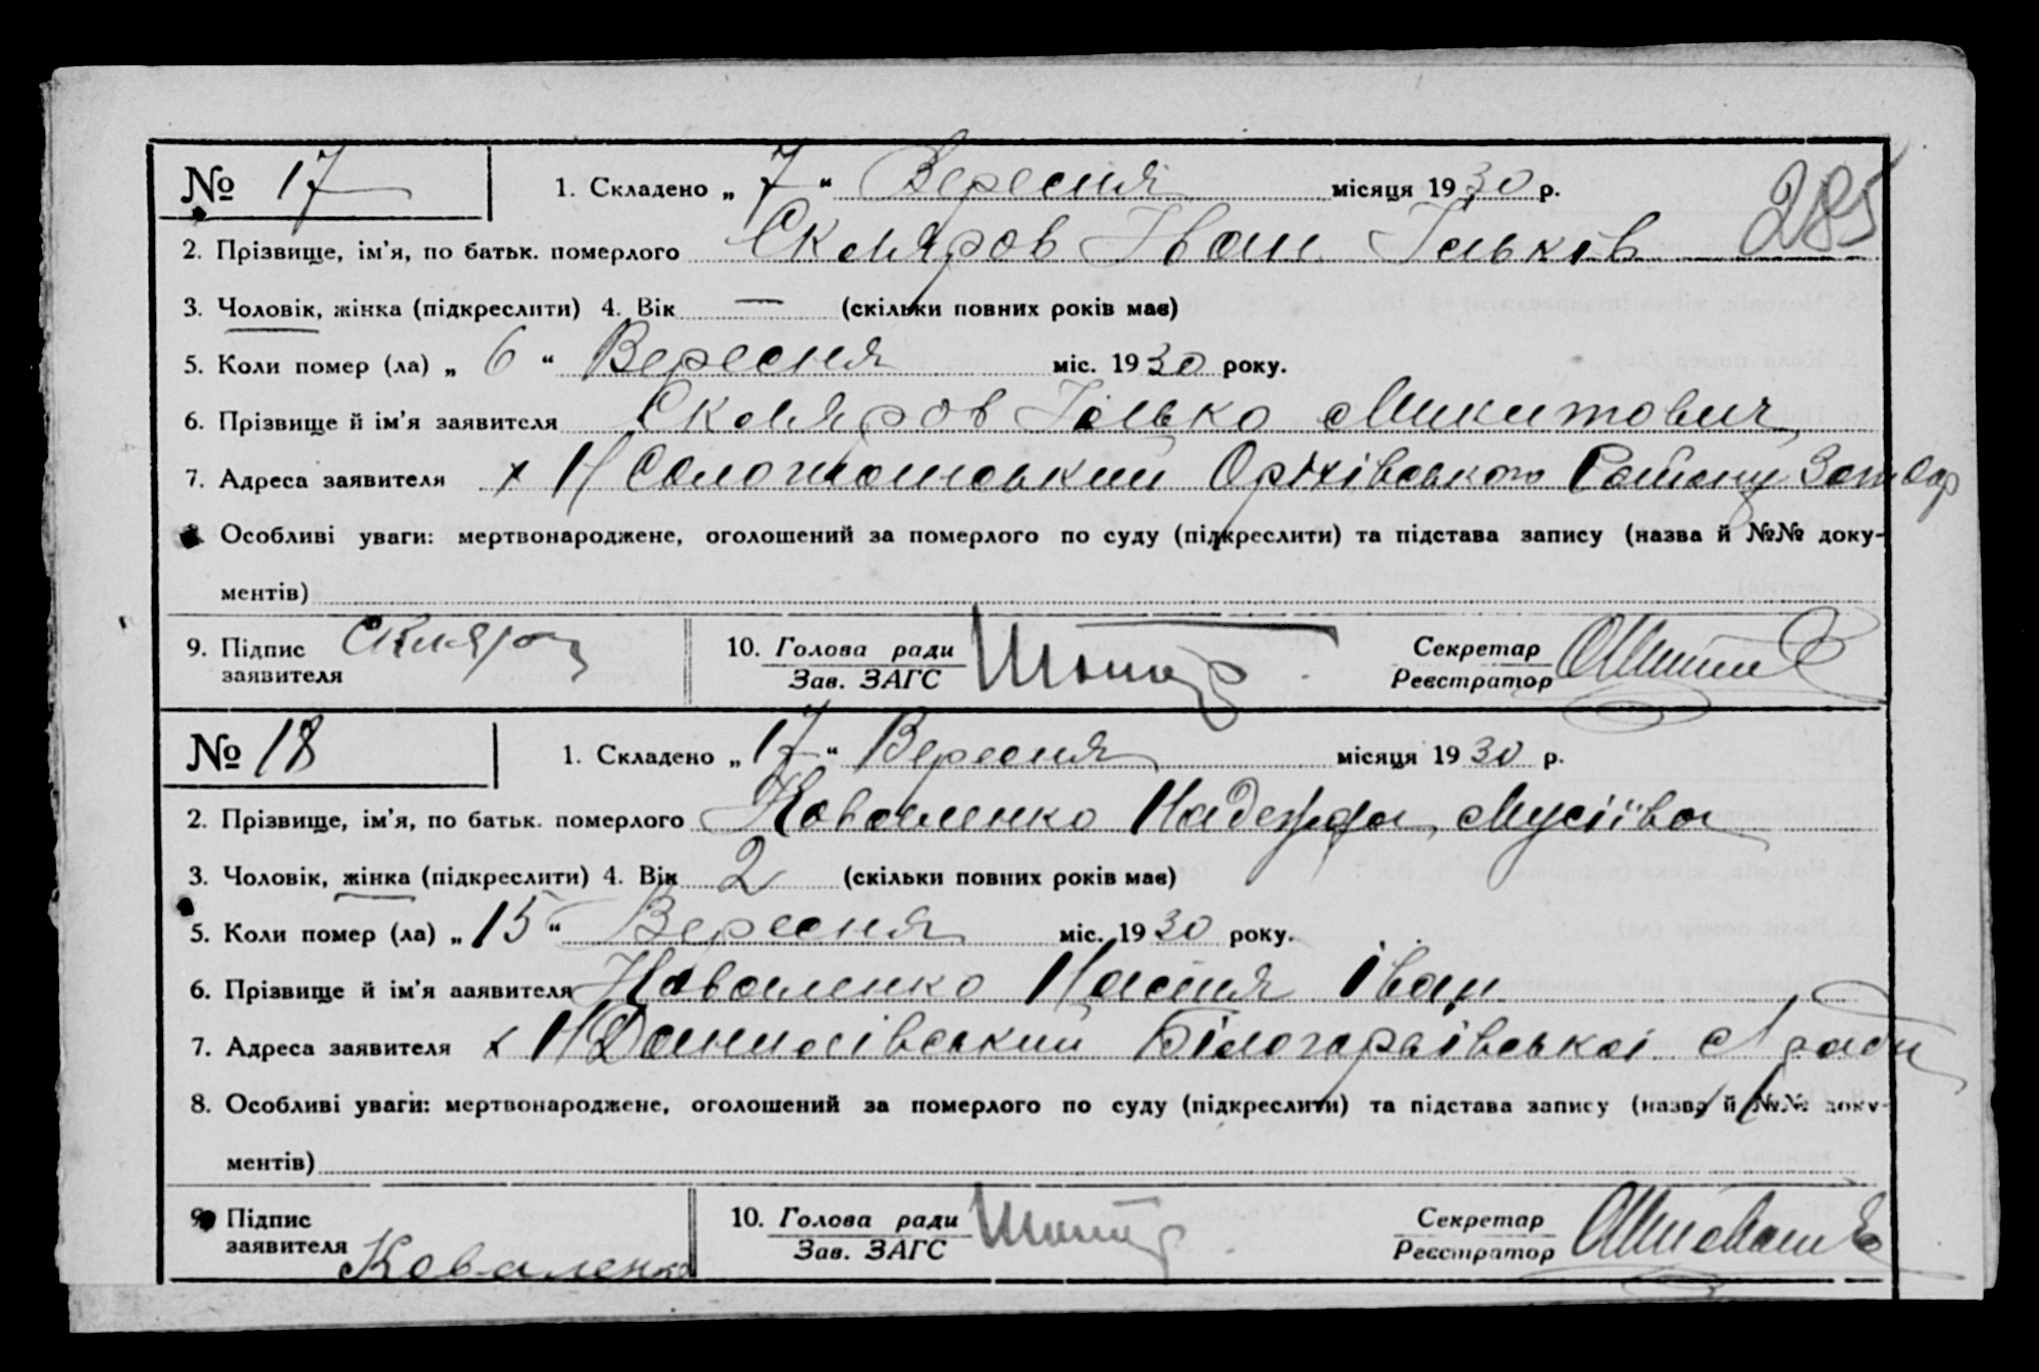 № 17 1. Складено „ 7 “ Вересня місяця 1930 р. 285
2. Прізвище, ім'я, по батьк. померлого Скляров Іван Ільків
3. Чоловік, жінка (підкреслити) 4. Вік — (скільки повних років має)
5. Коли помер (ла) „ 6 “ Вересня міс. 1930 року.
6. Прізвище й ім'я заявителя Скляров Ілько Микитович
7. Адреса заявителя х Оріхівського Району
Особливі уваги: мертвонароджене, оголошений за померлого по суду (підкреслити) та підстава запису (назва й №№ доку-
ментів)
9. Підпис заявителя Скляров 10. Голова ради Зав. ЗАГС Секретар Реєстратор
№ 18 1. Складено „ 17 “ Вересня місяця 1930 р.
2. Прізвище, ім'я, по батьк. померлого Коваленко Надежда Мусіївна
3. Чоловік, жінка (підкреслити) 4. Вік 2 (скільки повних років має)
5. Коли помер (ла) „ 15 “ Вересня міс. 1930 року.
6. Прізвище й ім'я заявителя Коваленко Настя Іван
7. Адреса заявителя х Данилівський ради
8. Особливі уваги: мертвонароджене, оголошений за померлого по суду (підкреслити) та підстава запису (назва й №№ доку-
ментів)
9. Підпис заявителя Коваленко 10. Голова ради Зав. ЗАГС Секретар Реєстратор